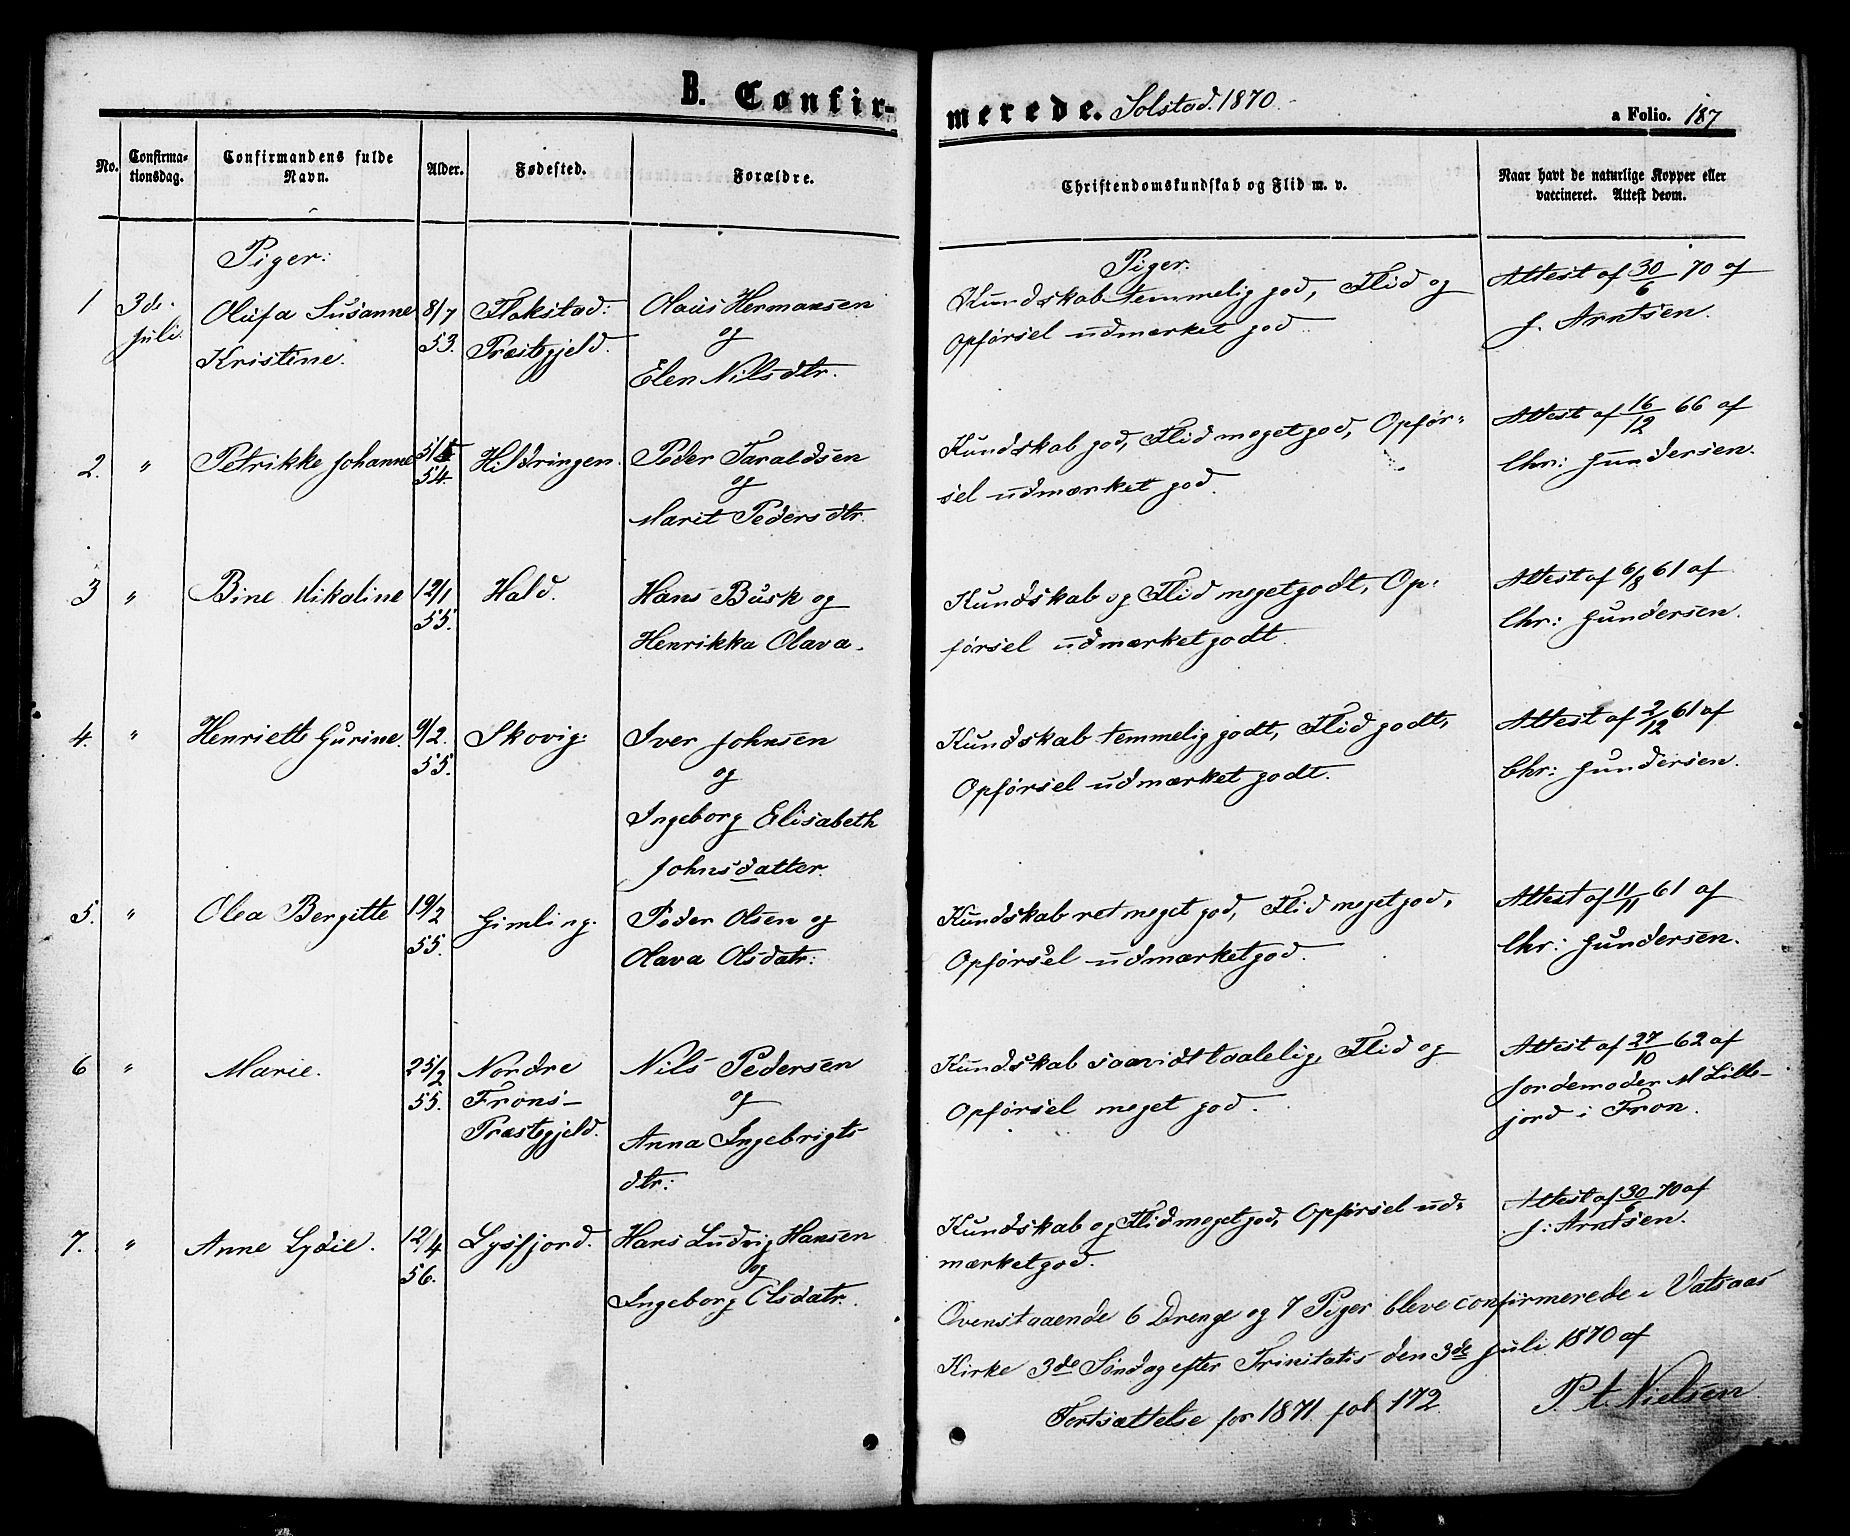 B. Confirmerede. Solstad. 1870. a Folio. 187
No. Confirmationsdag. Confirmandens fulde Navn. Alder. Fødested. Forældre. Christendomskundskab og Flid m. v. Naar havt de naturlige Kopper eller vaccineret. Attest derom.
Piger: Piger:
1 3de Olufa Susanne 8/7 Flakstad: Olaus Hermansen Kundskab temmelig god, Flid og Attest af 30/6 70 af
Juli. Kristine. 53. Præstegjeld. og Opførsel udmærket god. J. Arntsen.
Elen Nilsdtr.
2. " Petrikke Johanne 54. Hildringen. Peder Taraldsen Kundskab god, Flid meget god, Opfør- Attest af 16/12 66 af
og sel udmærket god. Chr: Gundersen.
Marit Pedersdtr.
3 " Bine Nikoline 12/1 Hald. Hans Busk og Kundskab og Flid meget godt, Op- Attest af 6/8 61 af
55. Henrikka Olava. førsel udmærket godt. Chr: Gundersen.
4. " Henriette Gurine. 9/2. Skovig: Iver Johnsen Kundskab temmelig godt, Flid godt, Attest af 2/12 61 af
55. og Opførsel udmærket godt. Chr: Gundersen.
Ingeborg Elisabeth
Johnsdatter.
5. " Olea Bergitte 19/2 Gimling. Peder Olsen og Kundskab ret meget god, Flid meget god, Attest af 11/11 61 af
55. Olava Olsdatr: Opførsel udmærket god. Chr: Gundersen.
6 " Marie. 25/2 Nordre Nils Pedersen Kundskab saavidt taalelig, Flid og Attest af 27/10 62 af
55. Frons- og Opførsel meget god. Jordemoder M Lille-
Præstegjeld. Anna Ingebrigts jord i Fron.
dtr:
7. " Anne Lydie. 12/4 Lysfjord. Hans Ludvig Hansen Kundskab og Flid meget god, Opførsel ud- Attest af 30/6 70 af
56. og mærket god. J: Arntsen.
Ingeborg Olsdatr.
Ovenstaaende 6 Drenge og 7 Piger bleve confirmerede i Vatsaas
Kirke 3de Søndag efter Trinitatis den 3de Juli 1870 af
Fortsættelse for 1871 fol 172 P. A. Nielsen